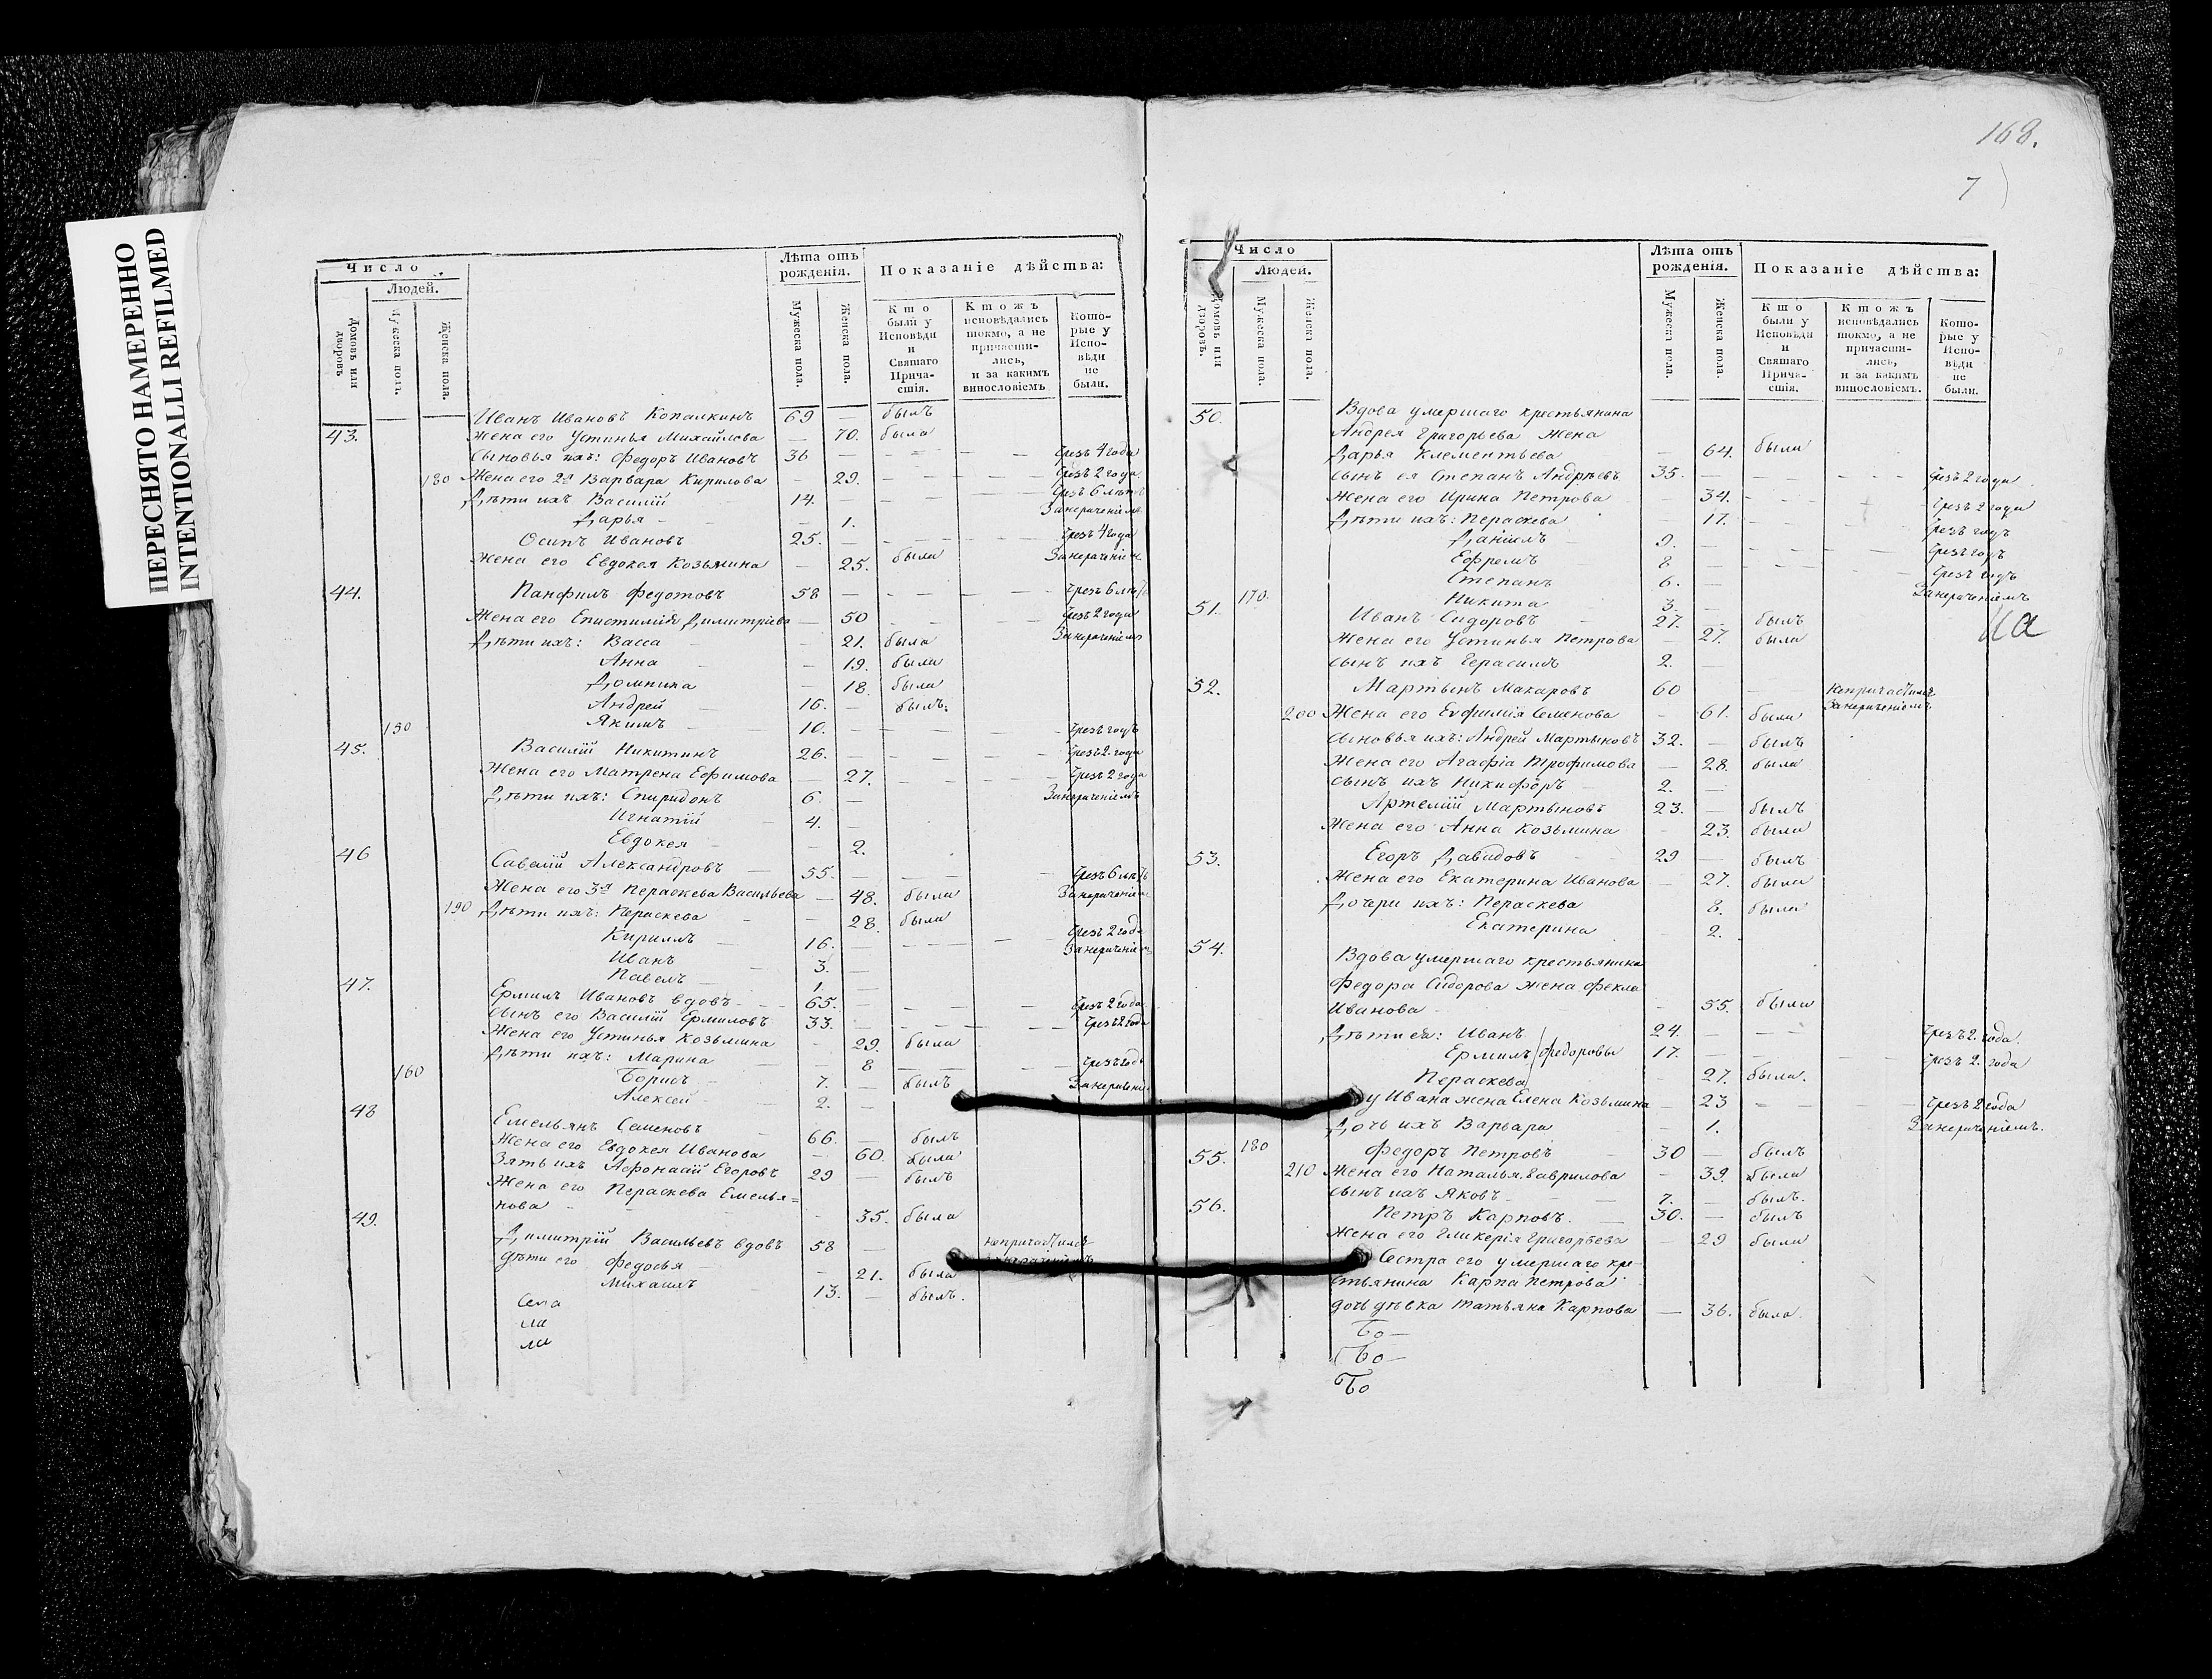 ПЕРЕСНЯТО НАМЕРЕННО
INTENTIONALLI REFILMED
Число
Людей.
Домовъ или дворовъ
Мужеска пола.
Женска пола.
Лѣта отъ рожденія.
Мужеска пола.
Женска пола.
Показаніе дѣйства:
Кто были у Исповѣди и Святаго Причастія.
Ктожъ исповѣдались токмо, а не причастились, и за какимъ винословіемъ
Которые у Исповѣди не были.
43. Иванъ Ивановъ Копалкинъ 69 — былъ
Жена его Устинья Михайлова — 70. была
Сыновья ихъ: Федоръ Ивановъ 36 — — — — чрезъ 4 года
180 Жена его 2я Варвара Кирилова — 29. — — — чрезъ 2 года
Дѣти ихъ Василій 14. — — — чрезъ 6 лѣтъ
Занераченіемъ
Дарья — — 1.
Осипъ Ивановъ 25. — — — — чрезъ 4 года
Занераченіем
Жена его Евдокея Козьмина — 25. была
44. Панфилъ Федотовъ 58 — — — — чрезъ 6 лѣтъ
Жена его Епистимія Димитріева — 50 — — — чрезъ 2 года
Занераченіемъ
Дѣти ихъ: Васса — 21. была
Анна — 19. была
Домника — 18. была
Андрей 16. — былъ.
150 Якимъ 10. — — — чрезъ годъ
45. Василій Никитинъ 26. — — — чрезъ 2. года
Жена его Матрена Ефимова — 27. — — — чрезъ 2 года
Занераченіемъ
Дѣти ихъ: Спиридонъ 6. —
Игнатій 4. —
Евдокея — 2.
46 Савелій Александровъ 55. — — — чрезъ 6 лѣтъ
Занераченіем
Жена его 3я Пераскева Васильева — 48. была
190 Дѣти ихъ: Пераскева — 28. была
Кирилъ 16. — — — чрезъ 2 года
Занераченіем
Иванъ 3. —
Павелъ 1. —
47. Ермилъ Ивановъ вдовъ 65. — — — чрезъ 2 года
Сынъ его Василій Ермиловъ 33. — — — чрезъ 2 года
Жена его Устинья Козьмина — 29. была
Дѣти ихъ: Марина — 8 — — чрезъ годъ
160 Борисъ 7. — былъ
Алексей 2. —
48 Емельянъ Семеновъ 66. — былъ
Жена его Евдокея Иванова — 60. была
Зять ихъ Афонасій Егоровъ 29 — былъ
Жена его Пераскева Емелья=
нова — 35. была
49. Димитрій Васильевъ вдовъ 58 — непричастился
Дѣти его Федосья — 21. была
Михаилъ 13. — былъ.
Села
ла
ла
168.
7
Число
Людей.
Домовъ или дворовъ.
Мужеска пола.
Женска пола.
Лѣта отъ рожденія.
Мужеска пола.
Женска пола.
Показаніе дѣйства:
Кто были у Исповѣди и Святаго Причастія.
Ктожъ исповѣдались токмо, а не причастились, и за какимъ винословіемъ.
Которые у Исповѣди не были.
50. Вдова умершаго крестьянина
Андрея Григорьева жена
Дарья Клементьева — 64. была
Сынъ ея Степанъ Андрѣевъ 35. — — — чрезъ 2 года
Жена его Ирина Петрова — 34. — — — чрезъ 2 года
Дѣти ихъ: Пераскева — 17. — — — чрезъ годъ
Даніилъ 9. — — — чрезъ годъ
Ефремъ 8 — — — чрезъ годъ
Занераченіемъ
Степанъ 6. —
170. Никита 3. —
51. Иванъ Сидоровъ 27. — былъ
Жена его Устинья Петрова — 27. была
Сынъ ихъ Герасимъ 2. —
52. Мартынъ Макаровъ 60 — — непричастился
Занераченіемъ
200 Жена его Евфимія Семенова — 61. была
Сыновья ихъ: Андрей Мартыновъ 32. — былъ
Жена его Агафіа Трофимова — 28. была
Сынъ ихъ Никифоръ 2. —
Артемій Мартыновъ 23. — былъ
Жена его Анна Козьмина — 23. была
53. Егоръ Давыдовъ 29 — былъ
Жена его Екатерина Иванова — 27. была
Дочери ихъ: Пераскева 8. была
Екатерина — 2.
54. Вдова умершаго крестьянина
Федора Сидорова жена Фекла
Иванова — 55. была
Дѣти ея: Иванъ 24. — — — чрезъ 2. года.
Ермилъ Федоровы 17. — — чрезъ 2. года
Пераскева — 27. была.
у Ивана жена Елена Козьмина — 23 — — чрезъ 2 года
Занераченіемъ.
Дочь ихъ Варвара — 1.
55. 180 Федоръ Петровъ 30 — былъ
210 Жена его Наталья Гаврилова — 39. была
Сынъ ихъ Яковъ 7. — былъ.
56. Петръ Карповъ. 30. — былъ
Жена его Гликерія Григорьева — 29 была
Сестра его умершаго кре-
стьянина Карпа Петрова
дочь дѣвка Татьяна Карпова — 36. была.
Бо—
Бо—
Бо